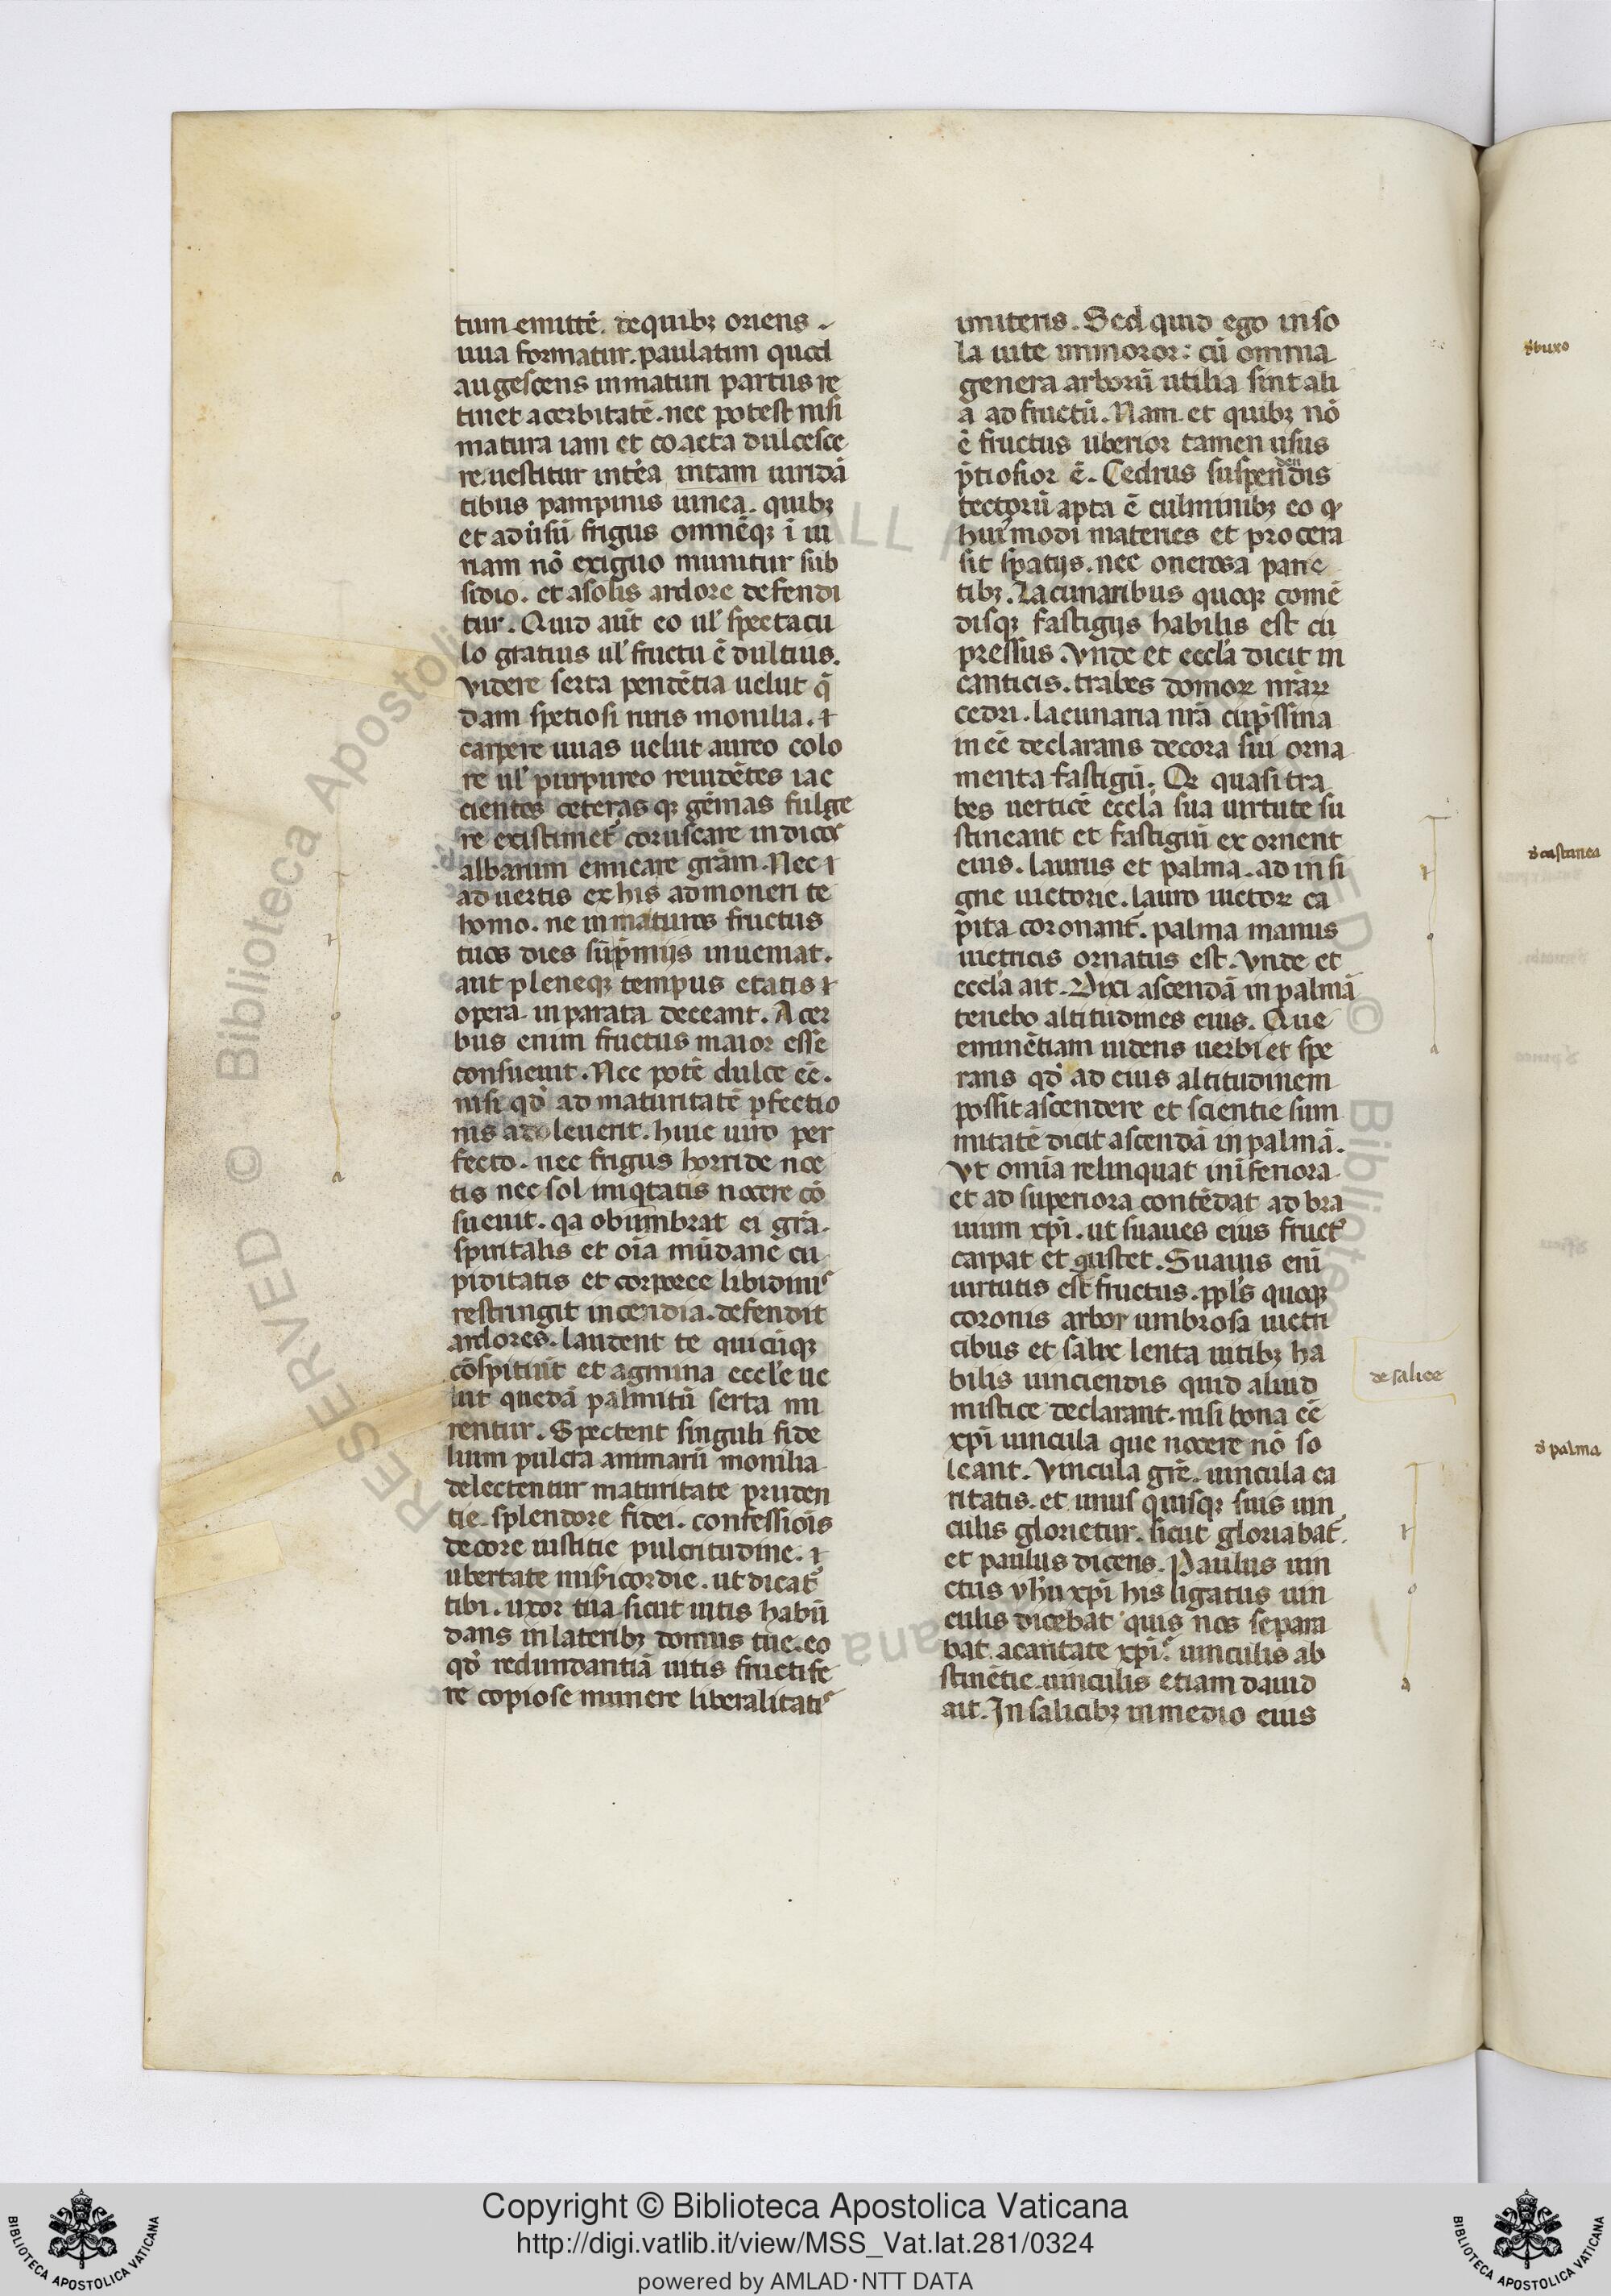 tum emittē. dequibꝫ oriens
uua formatur. paulatim quod
augescens inmaturi partus re
tinet acerbitatē. nec potest nisi
matura iam et coacta dulcesce
re. uestitur intēa uitam uiridā
tibus pampinis uinea. quibꝫ
et aduisū frigus omnēqꝫ i iu
riam nō exiguo munitur sub
sidio. et asolis ardore defendi
tur. Quid aūt eo ul' spectacu
lo gratius ul' fructu ē dultius.
videre serta pendētia uelut q̄
dam spetiosi ruris monilia. ⁊
carpere uuas uelut aureo colo
re ul' purpureo reuidētes iac
cientos ceteras qꝫ gēmas fulge
re existimet coruscare indicos
albarum emicare grām. Nec ⁊
aduertis exhis admoneri te
homo. ne inmaturos fructus
tuos dies sūpmijs inueniat.
aut pleneqꝫ tempus etatis ⁊
opera inparata deceant. Acer
bus enim fructus maior esse
consueuit. Nec potē dulce eē.
nisi qđ ad maturitatē ꝑfectio
nis adoleuerit. huic uiro per
fecto. nec frigus horride noc
tis nec sol iniqtatis nocere cō
sueuit. qa obumbrat ei grā.
spiritalis et oīa mūdane cu
piditatis et corporee libidinis
restringit incendia. defendit
ardores. laudent te quicūqꝫ
cōspitiūt et agmina eccl'e ue
lut quedā palmitū serta mi
rentur. Spectent singuli fide
lium pulcra animarū monilia
delectentur maturitate pruden
tie splendore fidei. confessiois
decore iustitie pulcritudine. ⁊
ubertate mis̄icordie. ut dicat̄
tibi. uxor tua sicut uitis habū
dans inlateribꝫ domus tue. eo
qđ redundantiā uitis fructife
re copiose munere liberalitatis
imiteris. Sed quid ego inso
la uite inmoror: cū omnia
genera arborū utilia sint ali
a ad fructū. Nam et quibꝫ nō
ē fructus uberior tamen usus
p̄tiosior ē. Cedrus suspendendis
tectorū apta ē culminibꝫ eo ꝙ
huiꝰmodi materies et procera
sit spatijs. nec onerosa parie
tibꝫ. Lacunaribus quoqꝫ comē
disqꝫ fastigijs habilis est cu
pressus. vnde et eccl'a dicit in
canticis. trabes domoꝝ nrāꝝ
cedri. lacunaria nrā cup̄ssina
in eē declarans decora sui orna
menta fastigii. Qꝛ quasi tra
bes uerticē eccl'a sua uirtute su
stineant et fastigiū exornent
eius. laurus et palma. ad insi
gne uictorie. lauro uictoꝝ ca
pita coronant̄. palma manus
uictricis ornatus est. vnde et
eccl'a ait. Dixi ascendā in palmā
tenebo altitudines eius. Que
eminētiam uidens uerbi et spe
rans qđ ad eius altitudinem
possit ascendere et scientie sum
mitatē dicit ascendā in palmā.
vt omīa relinquat inferiora
et ad superiora contēdat ad bra
uium xp̄i. ut suaues eius fructꝰ
carpat et gustet. Suauis enī
uirtutis est fructus. ppl's quoqꝫ
coronis arbor umbrosa uictri
cibus et salix lenta uitibꝫ ha
bilis uinciendis quid aliud
mistice declarant. nisi bona eē
xp̄i uincula que nocere nō so
leant. vincula grē. uincula ca
ritatis. et unus quisqꝫ suis uin
culis glorietur. sicut gloriabat̄
et paulus dicens. Paulus uin
ctus yhu xp̄i his ligatus uin
culis dicebat quis nos separa
bat acaritate xp̄i. uinculis ab
stinētie uinculis etiam dauid
ait. In salicibꝫ inmedio eius
de salice
đ buxo
đ castanea
đ palma
RESERVED © Biblioteca Apostolica
Copyright © Biblioteca Apostolica Vaticana
http://digi.vatlib.it/view/MSS_Vat.lat.281/0324
powered by AMLAD·NTT DATA
BIBLIOTECA APOSTOLICA VATICANA
BIBLIOTECA APOSTOLICA VATICANA